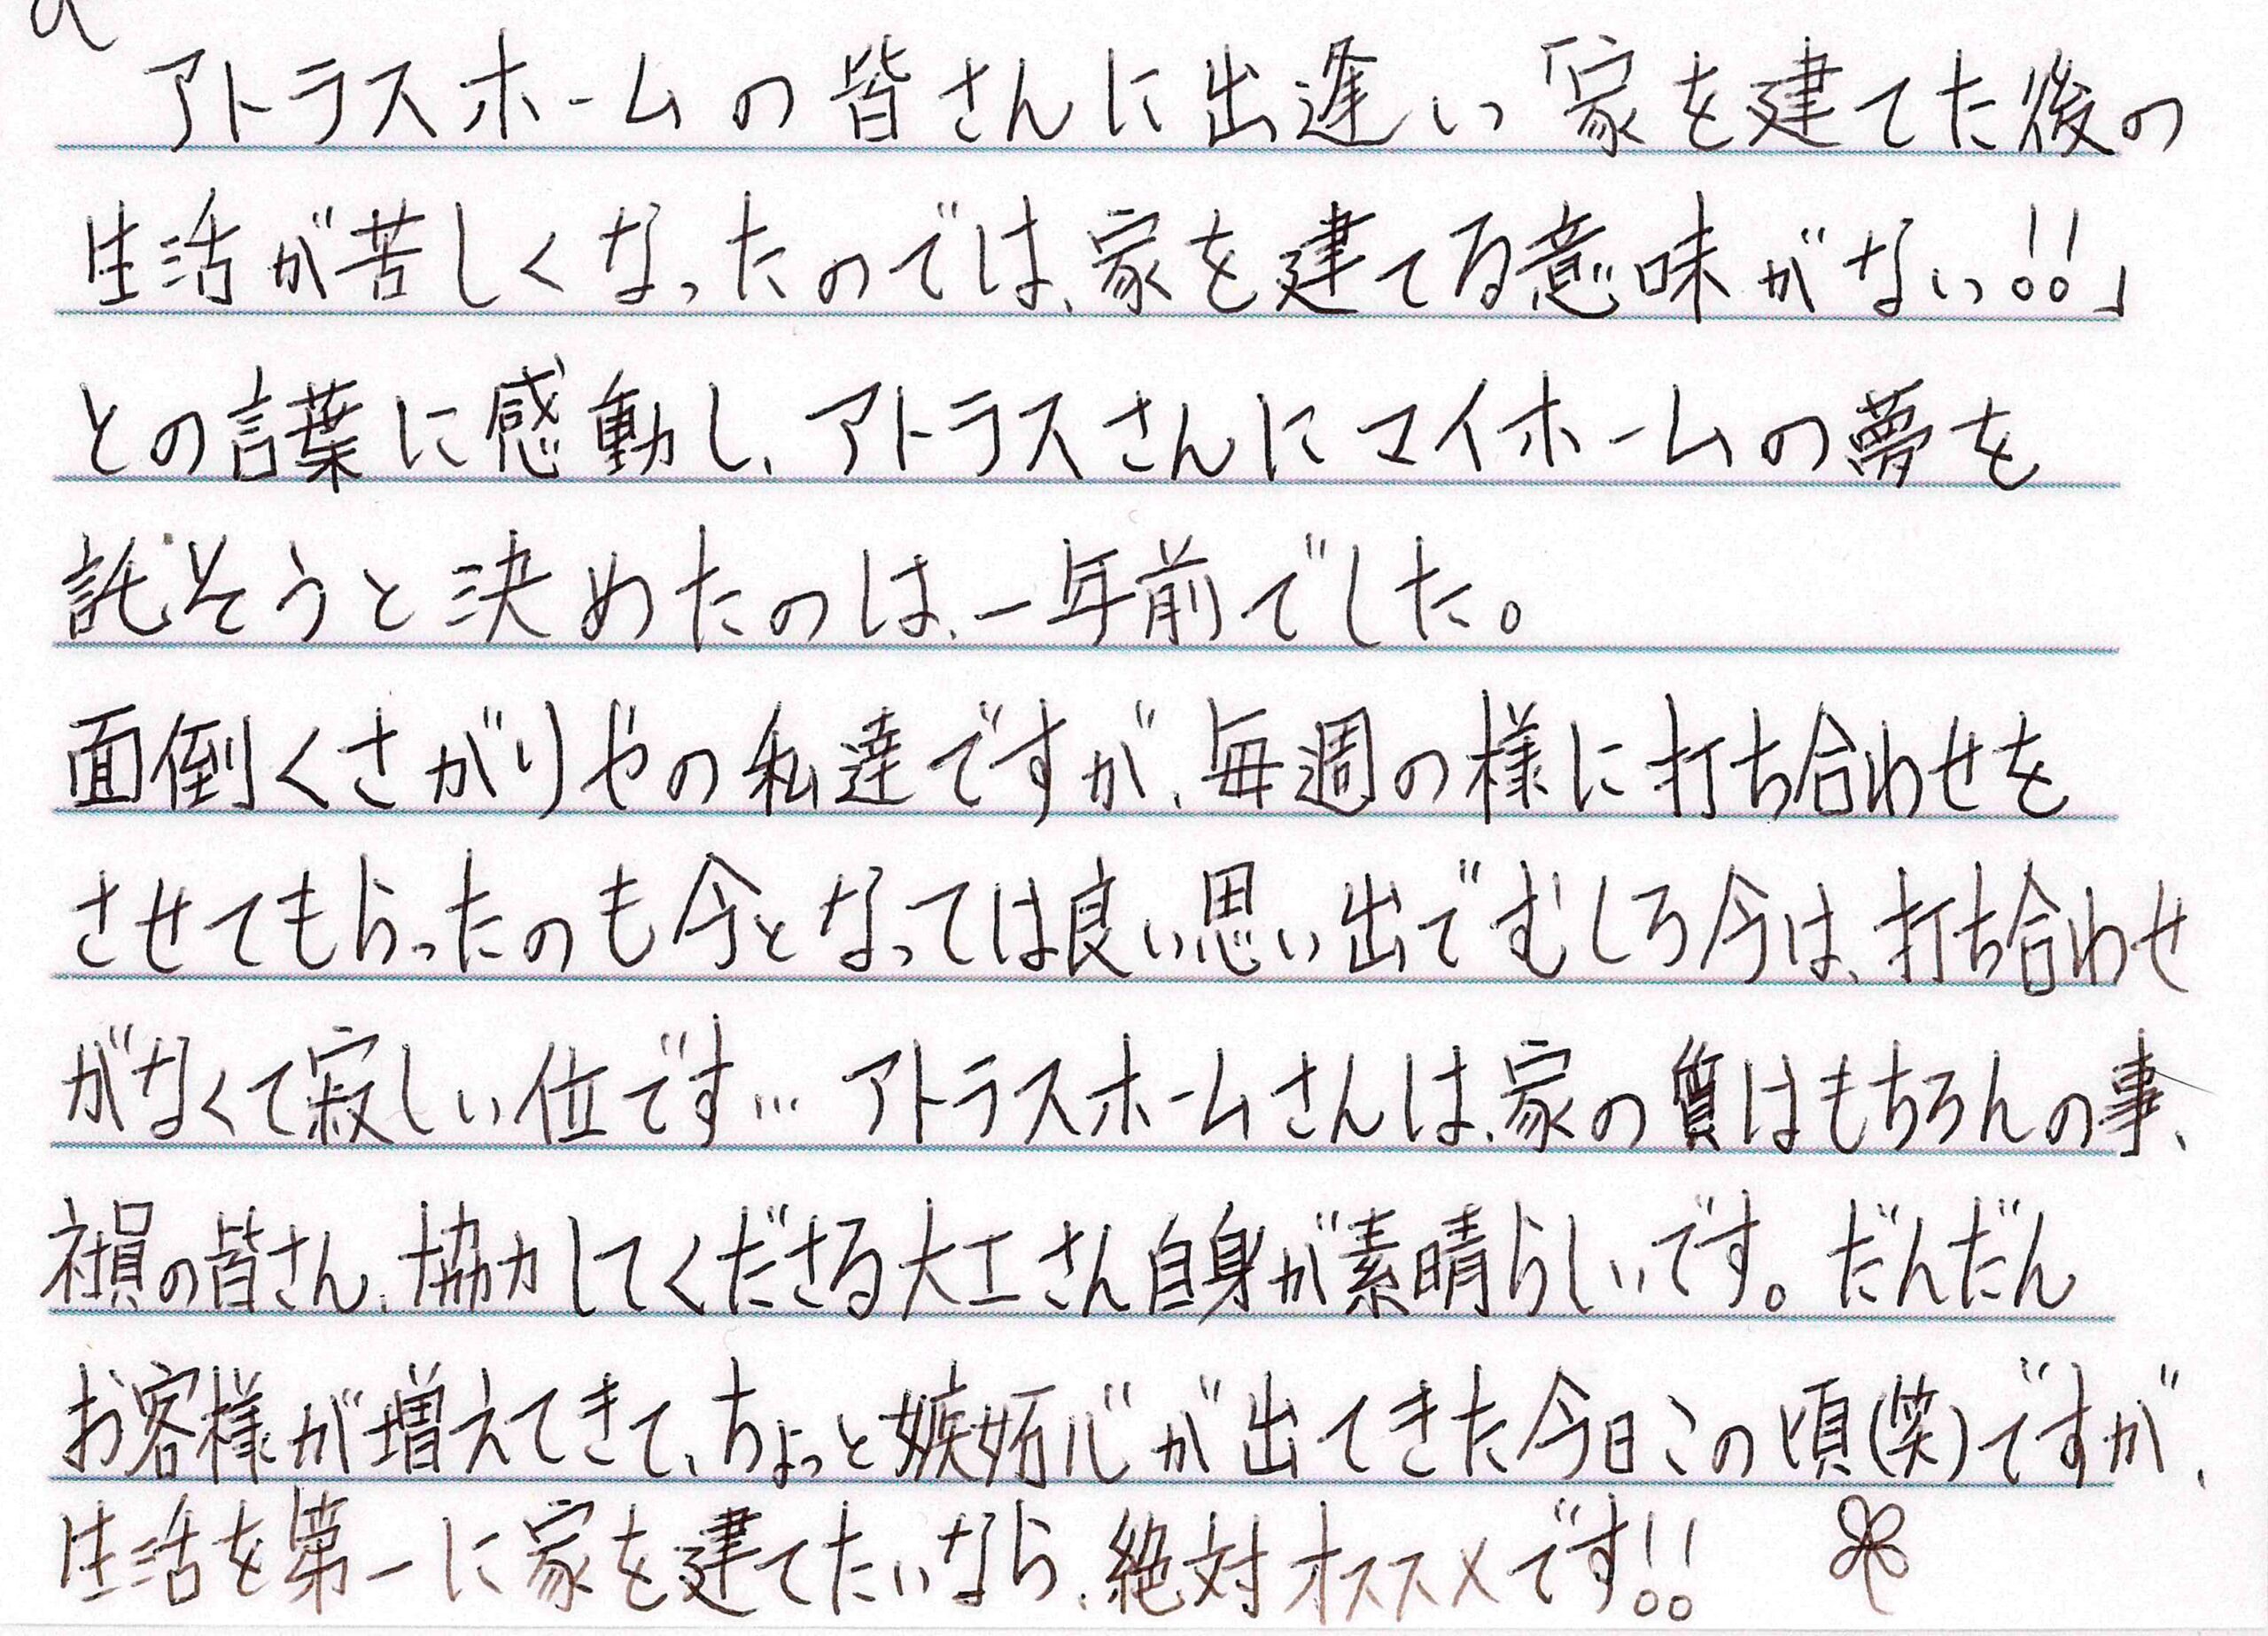 アトラスホームの皆さんに出逢い「家を建てた後の
生活が苦しくなったのでは、家を建てる意味がない!!」
との言葉に感動し、アトラスさんにマイホームの夢を
託そうと決めたのは、一年前でした。
面倒くさがりやの私達ですが、毎週の様に打ち合わせを
させてもらったのも今となっては良い思い出でむしろ今は、打ち合わせ
がなくて寂しい位です… アトラスホームさんは、家の質はもちろんの事、
社員の皆さん、協力してくださる大工さん自身が素晴らしいです。だんだん
お客様が増えてきて、ちょっと嫉妬心が出てきた今日この頃(笑)ですが、
生活を第一に家を建てたいなら、絶対オススメです!!